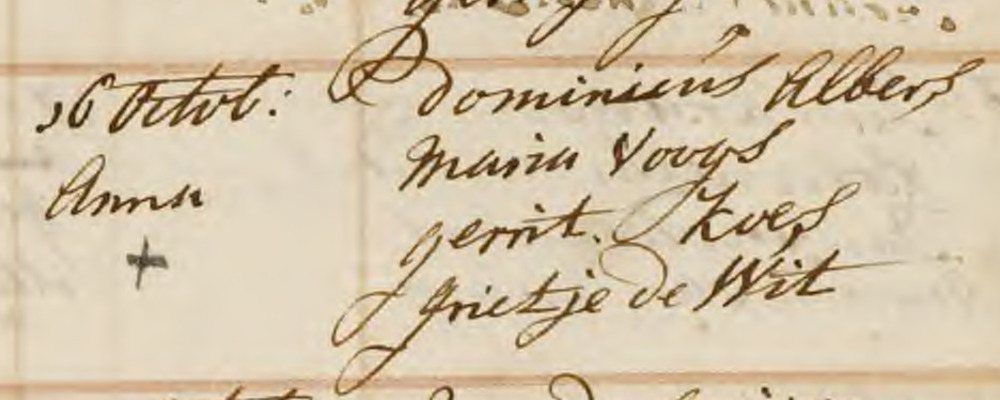 16 Octob:
Anna
+
Dominicus Albers
Maria Vooys
gerrit. Koes
grietje de Wit